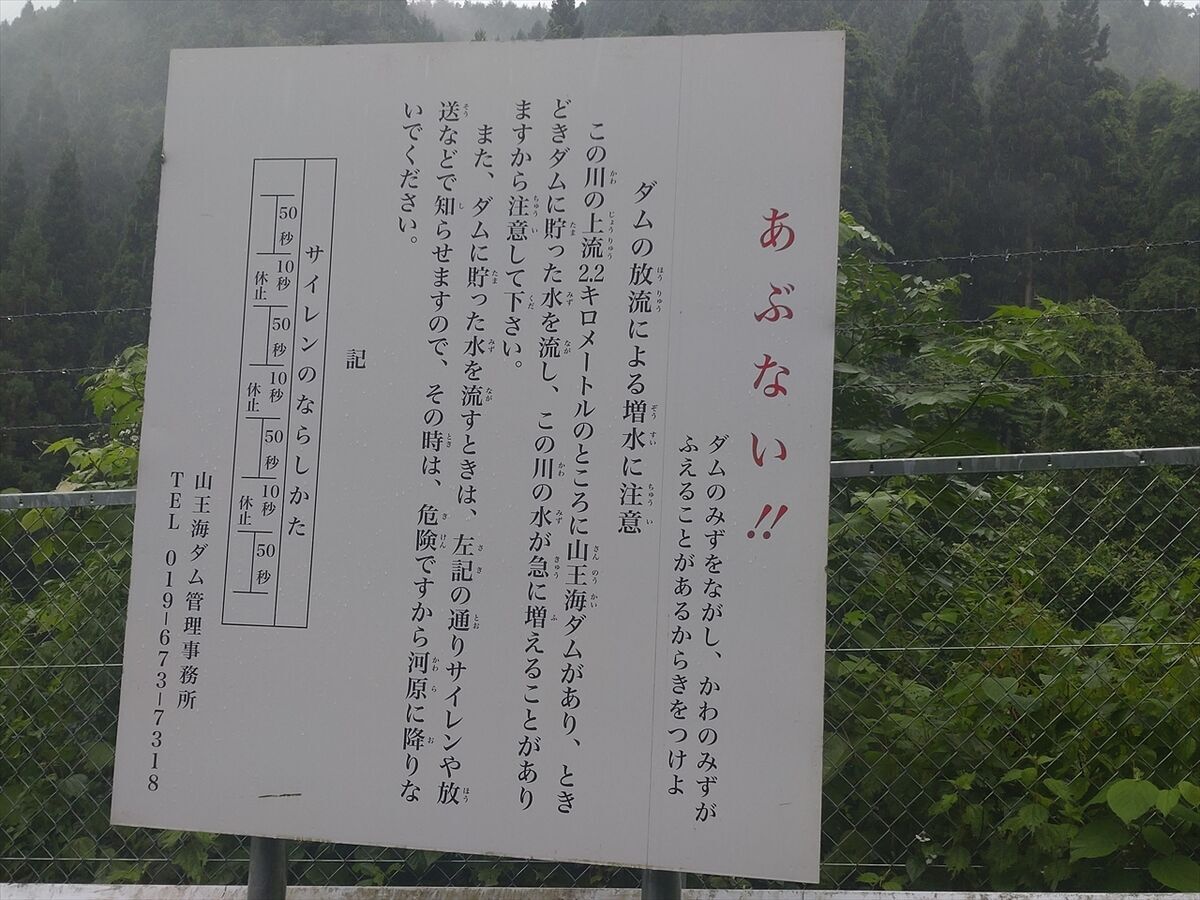 あぶない!!
ダムのみずをながし、かわのみずが
ふえることがあるからきをつけよ
ダムの放流による増水に注意
この川の上流2.2キロメートルのところに山王海ダムがあり、とき
どきダムに貯った水を流し、この川の水が急に増えることがあり
ますから注意して下さい。
また、ダムに貯った水を流すときは、左記の通りサイレンや放
送などで知らせますので、その時は、危険ですから河原に降りな
いでください。
記
サイレンのならしかた
50秒 10秒休止 50秒 10秒休止 50秒 10秒休止 50秒
山王海ダム管理事務所
TEL 019-673-7318